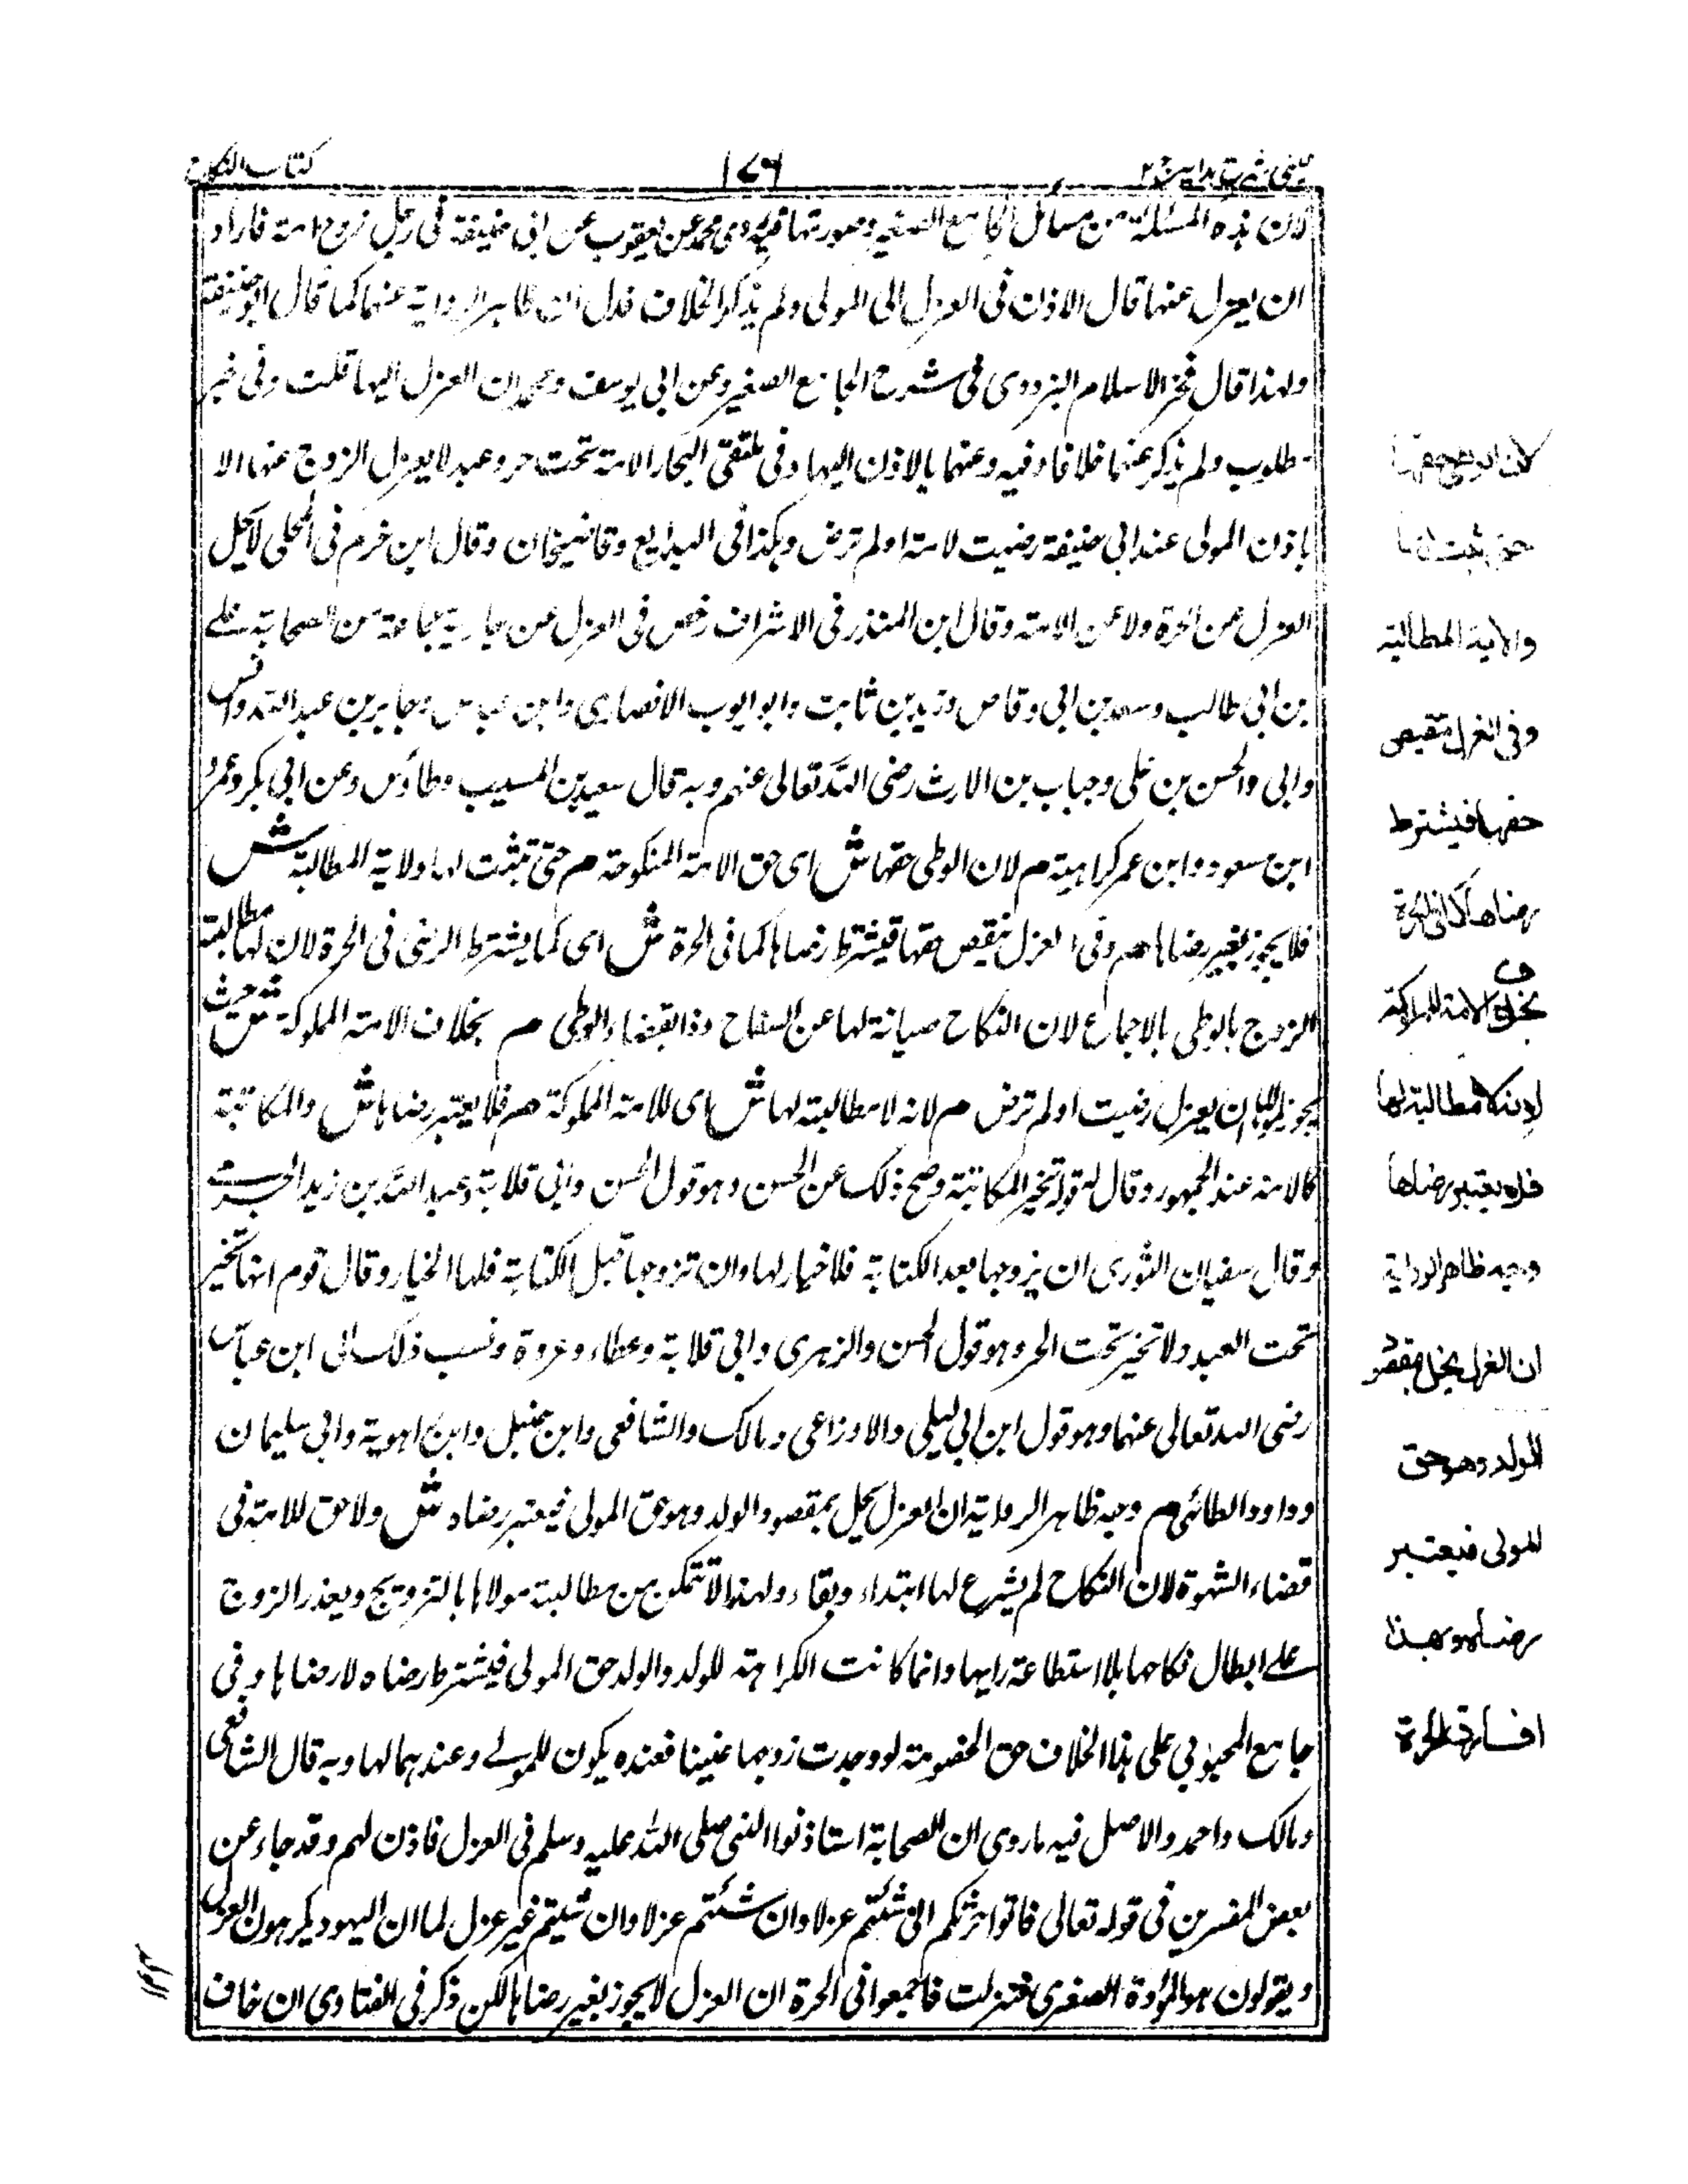 كتاب النكاح
١٧٦
عينى شرح هدايه ج ٢
لان هذه المسئلة من مسائل الجامع الصغير وصورتها فيه روى محمد عن يعقوب عن ابى حنيفة فى رجل زوج امة فاراد
ان يعزل عنها قال الاذن فى العزل الى المولى ولم يذكر الخلاف فدل ان ظاهر الرواية عنهما كما قال ابو حنيفة
ولهذا قال فخر الاسلام البزدوى فى شرح الجامع الصغير وعن ابى يوسف ومحمد ان العزل اليها قلت وفى خبر
مطلوب ولم يذكر عنهما خلافا وفيه وعنهما بالاذن اليها وفى ملتقى البحار الامة تحت حر وعبد لا يعزل الزوج عنها الا
باذن المولى عند ابى حنيفة رضيت لامة اولم ترض وهكذا فى البدايع وقاضيخان وقال ابن حزم فى المحلى لا يحل
العزل عن الحرة ولا عن الامة وقال ابن المنذر فى الاشراف رخص فى العزل عن جارية جماعة من الصحابة على
بن ابى طالب وسعد بن ابى وقاص وزيد بن ثابت وابو ايوب الانصارى وابن عباس وجابر بن عبد الله وانس
وابى والحسن بن على وجباب بن الارث رضى الله تعالى عنهم وبه قال سعيد بن المسيب وطاؤس وعن ابى بكر وعمر
ابن سعود وابن عمر كراهية م لان الوطى حقها ش اى حق الامة المنكوحة م حتى تثبت لها ولاية المطالبة ش
فلا يجوز بغير رضاها م وفى العزل تنقيص حقها فيشترط رضاها كما فى الحرة ش اى كما يشترط الرضى فى الحرة لان لها مطالبة
الزوج بالوطى بالاجماع لان النكاح صيانة لها عن السفاح وذا بقضاء الوطى م بخلاف الامة المملوكة ش حيث
يجوز للمولى ان يعزل رضيت اولم ترض م لانه لا مطالبة لها ش اى للامة المملوكة م فلا يعتبر رضاها ش والمكاتبة
كالامة عند الجمهور وقال تخير المكاتبة وصح ذلك عن الحسن وهو قول الحسن وابى قلابة وعبد الله بن زيد الجرمى
وقال سفيان الثورى ان يزوجها بعد الكتابة فلا خيار لها وان تزوجها قبل الكتابة فلها الخيار وقال قوم انها تخير
تحت العبد ولا تخير تحت الحر وهو قول الحسن والزهرى وابى قلابة وعطاء وعروة ونسب ذلك الى ابن عباس
رضى الله تعالى عنهما وهو قول ابن ابى ليلى والاوزاعى ومالك والشافعى وابن حنبل وابن راهوية وابى سليمان
وداود الطائى م وجه ظاهر الرواية ان العزل يخل بمقصود الولد وهو حق المولى فيعتبر رضاه ش ولا حق للامة فى
قضاء الشهوة لان النكاح لم يشرع لها ابتداء وبقاء ولهذا لا تتمكن من مطالبة مولاها بالتزويج ويعذر الزوج
على ابطال نكاحها بلا استطاعة رايها وانما كانت الكراهة للولد والولد حق المولى فيشترط رضاه لا رضاها وفى
جامع المحبوبى على هذا الخلاف حق الخصومة لو وجدت زوجها عنينا فعنده يكون للمولى وعندهما لها وبه قال الشافعى
ومالك واحمد والاصل فيه ما روى ان الصحابة استاذنوا النبى صلى الله عليه وسلم فى العزل فاذن لهم وقد جاء عن
بعض المفسرين فى قوله تعالى فاتوا حرثكم انى شئتم عزلا وان شئتم عزلا وان شئتم غير عزل لما ان اليهود يكرهون العزل
ويقولون هو المؤدة الصغرى فنزلت فاجمعوا فى الحرة ان العزل لا يجوز بغير رضاها لكن ذكر فى الفتاوى ان خاف
لان الوطى حقها
حتى تثبت لها
ولاية المطالبة
وفى العزل تنقيص
حقها فيشترط
رضاها كما فى الحرة
بخلاف الامة المملوكة
لانه لا مطالبة لها
فلا يعتبر رضاها
وجه ظاهر الرواية
ان العزل يخل بمقصود
الولد وهو حق
المولى فيعتبر
رضاه وبهذا
افارقت الحرة